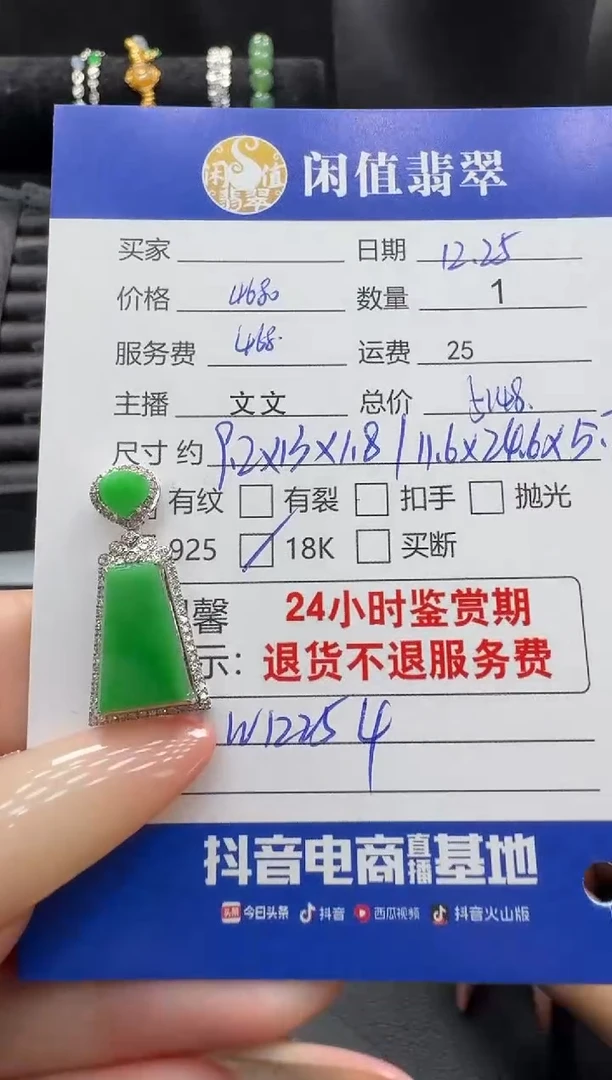 闲值翡翠
闲值翡翠
买家 日期 12.25
价格 4680 数量 1
服务费 468. 运费 25
主播 文文 总价 5148.
尺寸 约 9.2x13x1.8 / 11.6x24.6x5.
有纹 有裂 扣手 抛光
925 18K 买断
馨 24小时鉴赏期
示: 退货不退服务费
W12254
抖音电商直播基地
头条 今日头条 抖音 西瓜视频 抖音火山版